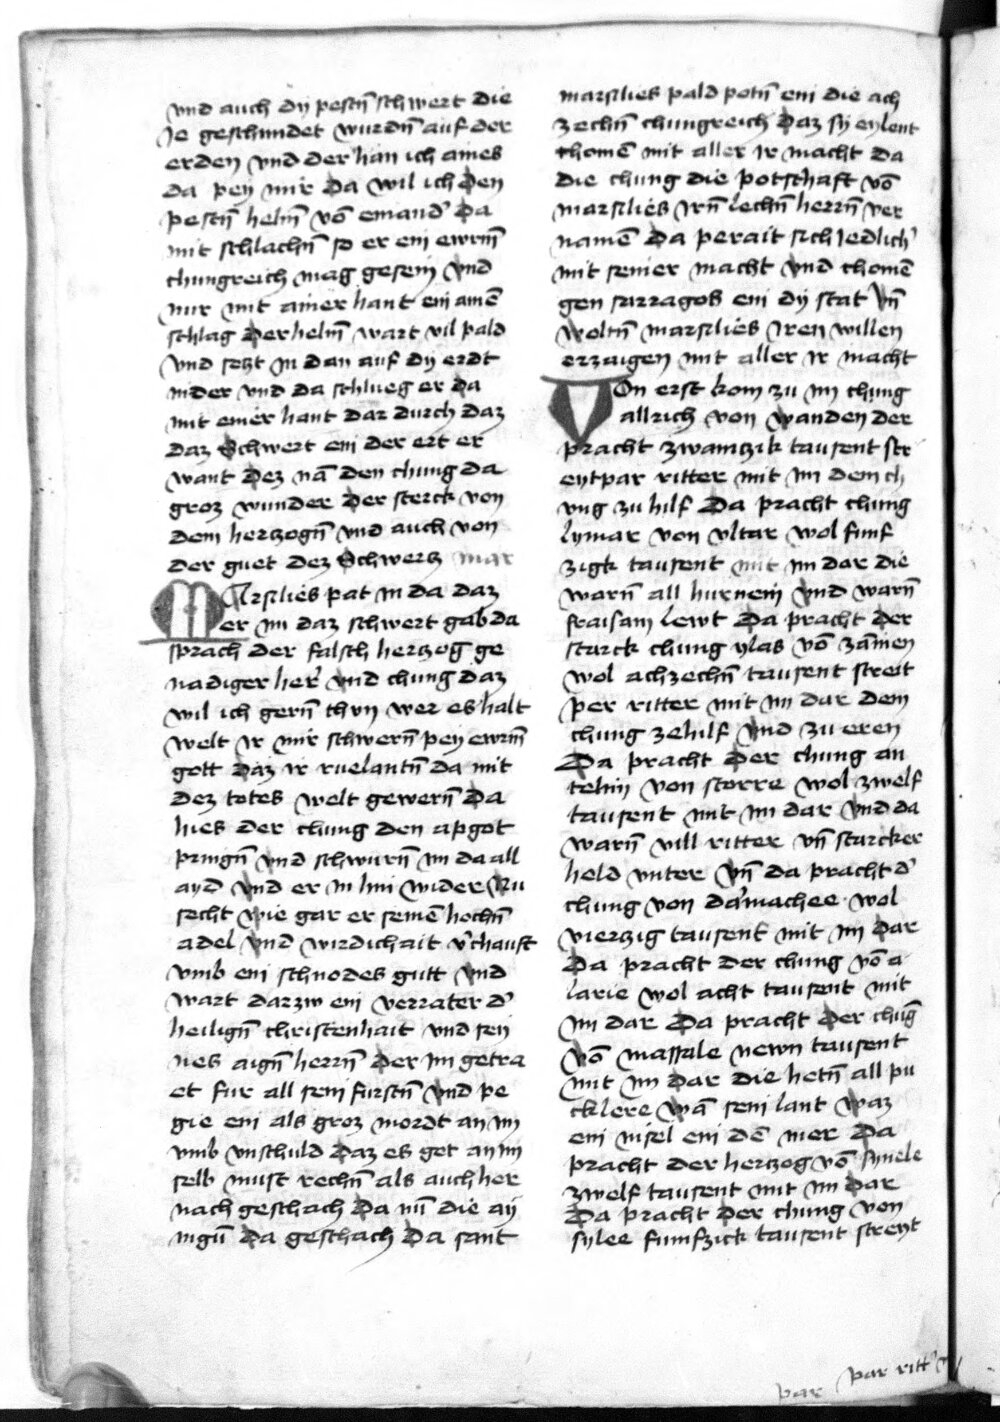 vnd auch dy pestn̄ schwert die
Je geschmidet wurdn̄ auf der
erden vnd der han ich aines
da pey mir Da wil ich Den
pestn̄ helm̄ vō emand' Da
mit schlachn̄ so er eni ewrm̄
chungreich mag gesein vnd
nur mit ainer hant eni ainē
schlag Der helm̄ wart vil pald
vnd sezt in dan auf dy erdt
nider vnd da schlueg er Da
mit einer hant daz durch daz
daz Schwert eni der ert er
want Dez nā den chung da
groz wunder Der sterck von
dem hertzogn̄ vnd auch von
der guet Dez Schwertz mar
MArsilies pat in da daz
er im daz schwert gab da
sprach der falsch hertzog ge
nadiger her' vnd chung daz
wil ich gern̄ thun wer es halt
welt ir mir schwern̄ pey ewrm̄
gott Daz ir ruelantn̄ da mit
dez totes welt gewern̄ Da
hies der chung den apgot
pringn̄ vnd schwurn̄ im da all
ayd vnd er in hni wider Nu
secht wie gar er seinē hochn̄
adel vnd wirdichait v'chauft
vmb eni schnodes gutt vnd
wart darzw eni verrater d'
heilign̄ christenhait vnd sey
nes aign̄ herrn̄ Der im getra
et fur all seni furstn̄ vnd pe
gie eni als groz mordt an im
vmb vnschuld Daz es got an im
selb must rechn̄ als auch her
nach geschach Da nū die ay
nigū Da geschach Da sant
marsilies pald potn̄ eni die ach
zechn̄ chungreich Daz sy eylent
chomē mit aller ir macht da
die chung die potschaft vō
marsilies irn̄ lechn̄ herrn̄ ver
namē Da perait sich Jedlich'
mit seiner macht vnd chomē
gen sarragos eni dy stat vn̄
woltn̄ marsilies iren willen
erzaigen mit aller ir macht
VOn erst kom zu im chung
allrich von wanden der
pracht zwainzik tausent str
eytpar ritter mit im dem ch
vng zu hilf Da pracht chung
lymar von vltar wol funf
zigk tausent mit im dar die
warn̄ all hurneni vnd warn̄
fraisam lewt Da pracht Der
starck chung ylas vō zāmen
wol achzechn̄ tausent streit
per ritter mit im dar dem
chung zehilf vnd zu eren
Da pracht Der chung an
telim von storre wol zwelf
tausent mit im dar vnd da
warn̄ vill ritter vn̄ starcker
held vnter vn̄ da pracht d'
chung von da'machee wol
vierzig tausent mit im Dar
Da pracht der chung vō a
larie wol acht tausent mit
im dar Da pracht Der chūg
vō massale newn tausent
mit im Dar die hetn̄ all pu
cklere wā seni lant waz
eni nisel eni dē mer Da
pracht der hertzog vō synele
zwelf tausent mit im dar
Da pracht Der chung von
sylee funfzick tausent streyt
par ritt'
par